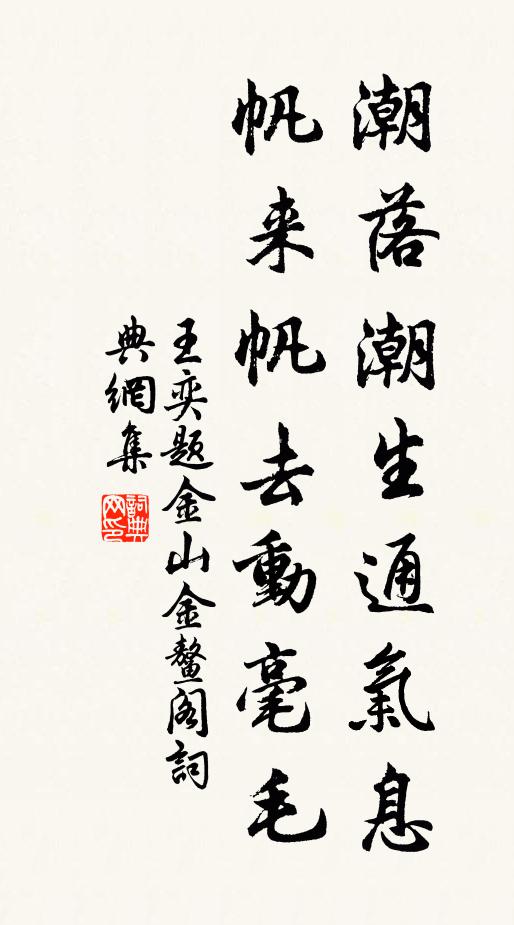 潮落潮生通氣息
帆来帆去動毫毛
王奕题金山金鳌阁詞
典網集
詞典网印